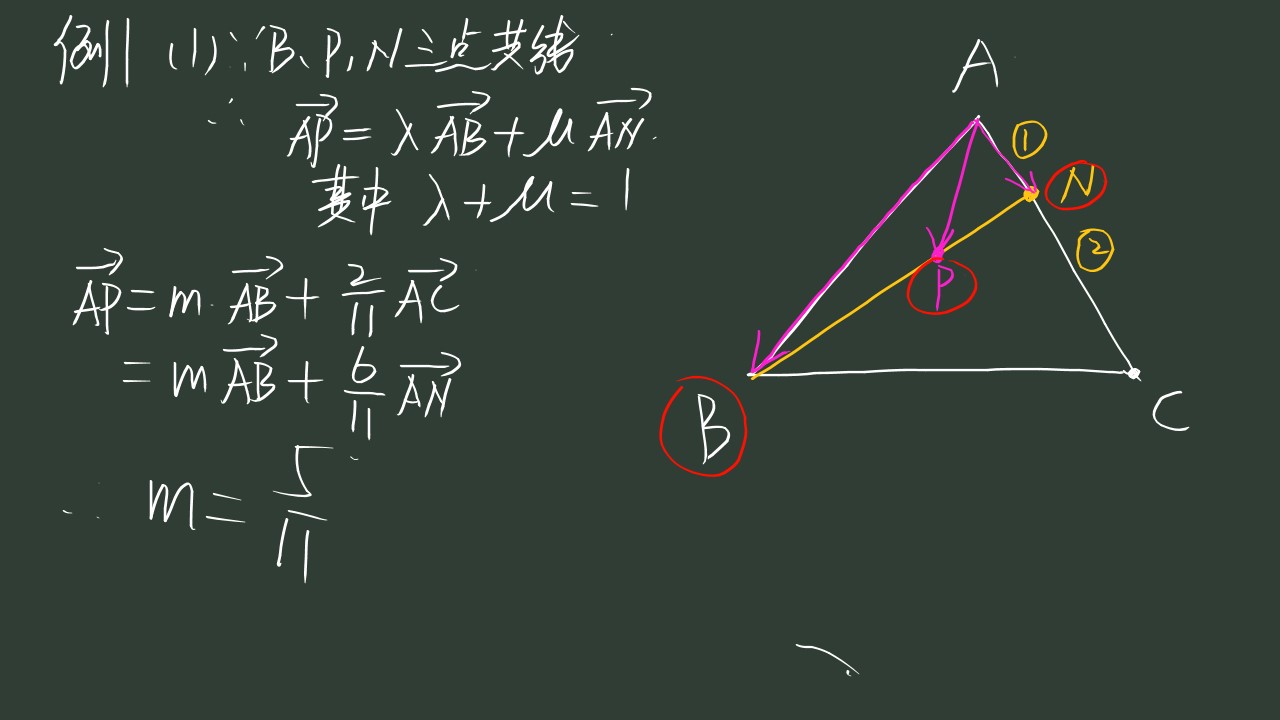 例1 (1)∵B、P,N三点共线
∴ \overrightarrow{AP}=λ\overrightarrow{AB}+μ\overrightarrow{AN}.
其中 λ+μ=1
\overrightarrow{AP}=m·\overrightarrow{AB}+\frac{2}{11}\overrightarrow{AC}
=m\overrightarrow{AB}+\frac{6}{11}\overrightarrow{AN}
∴ m=\frac{5}{11}
A
①
N
②
P
B
C